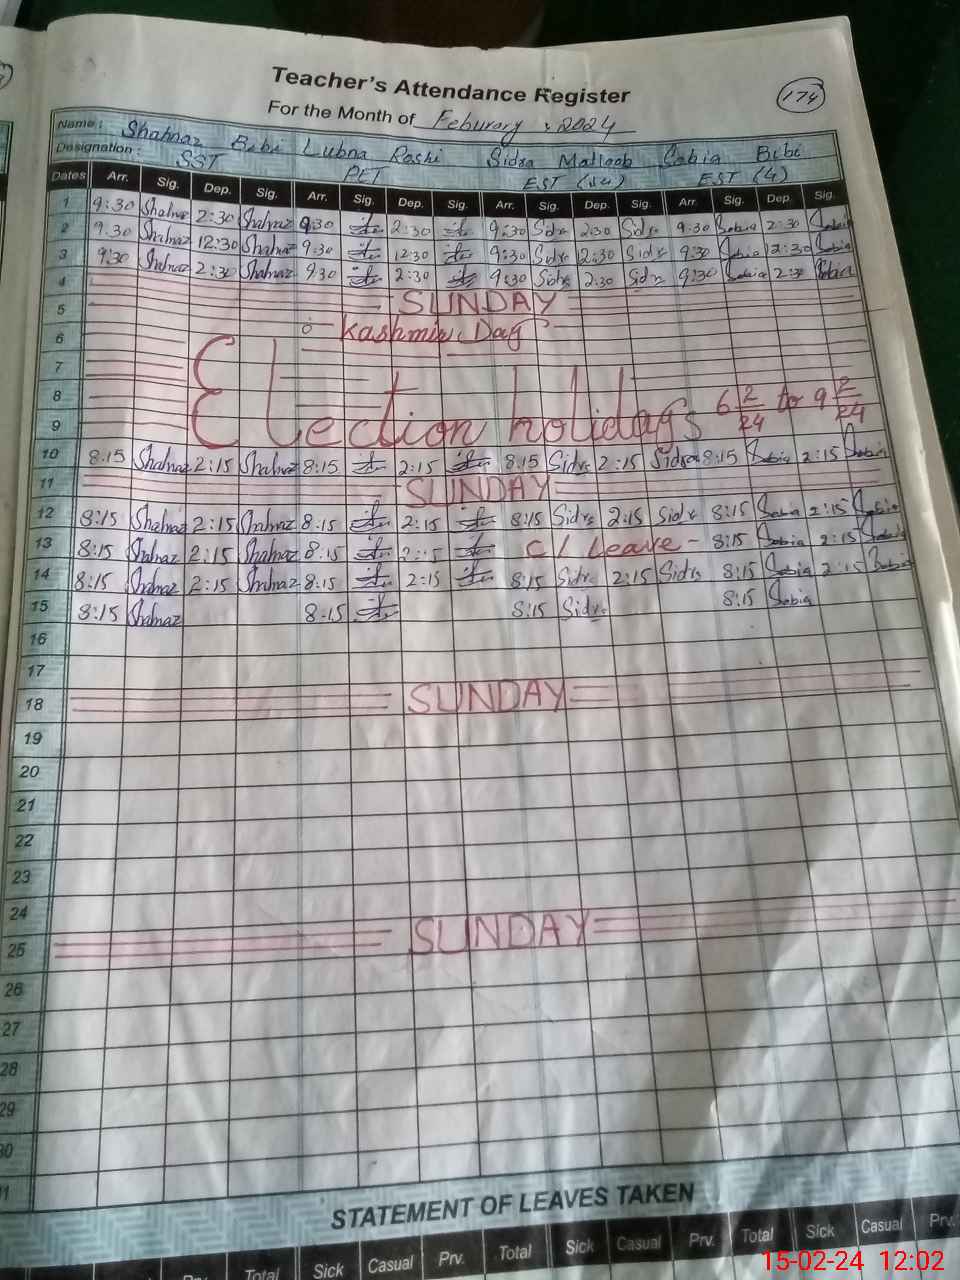 Teacher's Attendance Register
174
For the Month of Feburary : 2024
Name: Shahnaz Bibi Lubna Roshi Sidra Matloob Sabia Bibi
Designation: SST PET EST (14) EST (4)
Dates Arr. Sig. Dep. Sig. Arr. Sig. Dep. Sig. Arr. Sig. Dep. Sig. Arr. Sig. Dep. Sig.
1 9:30 Shahnaz 2:30 Shahnaz 9:30 2:30 9:30 Sidra 2:30 Sidra 9:30 Sabia 2:30 Sabia
2 9:30 Shahnaz 12:30 Shahnaz 9:30 12:30 9:30 Sidra 2:30 Sidra 9:30 Sabia 12:30 Sabia
3 9:30 Shahnaz 2:30 Shahnaz 9:30 2:30 9:30 Sidra 2:30 Sidra 9:30 Sabia 2:30 Sabia
4 SUNDAY
5 Kashmir Day
6
7
8 Election holidays 6 2/24 to 9 2/24
9
10 8:15 Shahnaz 2:15 Shahnaz 8:15 2:15 8:15 Sidra 2:15 Sidra 8:15 Sabia 2:15 Sabia
11 SUNDAY
12 8:15 Shahnaz 2:15 Shahnaz 8:15 2:15 8:15 Sidra 2:15 Sidra 8:15 Sabia 2:15 Sabia
13 8:15 Shahnaz 2:15 Shahnaz 8:15 2:15 C/Leave - 8:15 Sabia 2:15 Sabia
14 8:15 Shahnaz 2:15 Shahnaz 8:15 2:15 8:15 Sidra 2:15 Sidra 8:15 Sabia 2:15 Sabia
15 8:15 Shahnaz 8:15 8:15 Sidra 8:15 Sabia
16
17
18 SUNDAY
19
20
21
22
23
24
25 SUNDAY
26
27
28
29
30
31
STATEMENT OF LEAVES TAKEN
Prv. Total Sick Casual Prv. Total Sick Casual Prv. Total Sick Casual Prv.
15-02-24 12:02